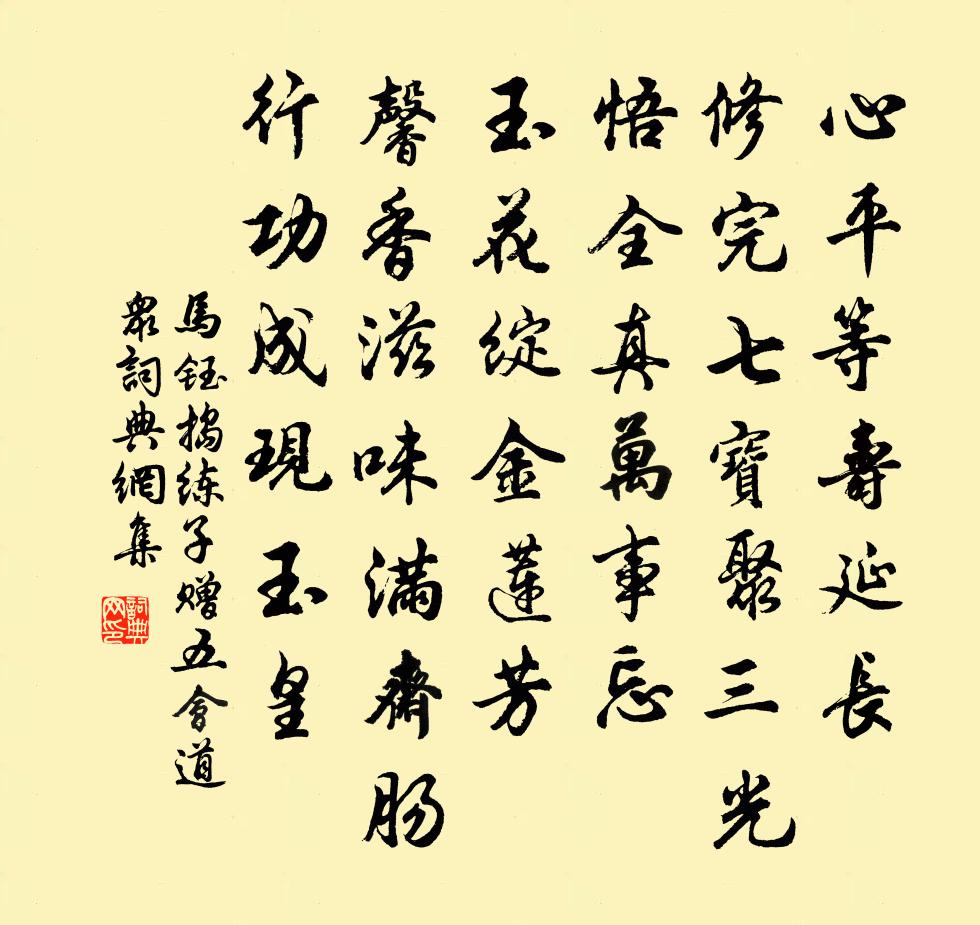 心平等壽延長
修完七寶聚三光
悟全真萬事忘
玉花綻金蓮芳
馨香滋味滿齊腸
行功成現玉皇
馬鈺搗練子贈五會道
眾詞典網集
詞典网印